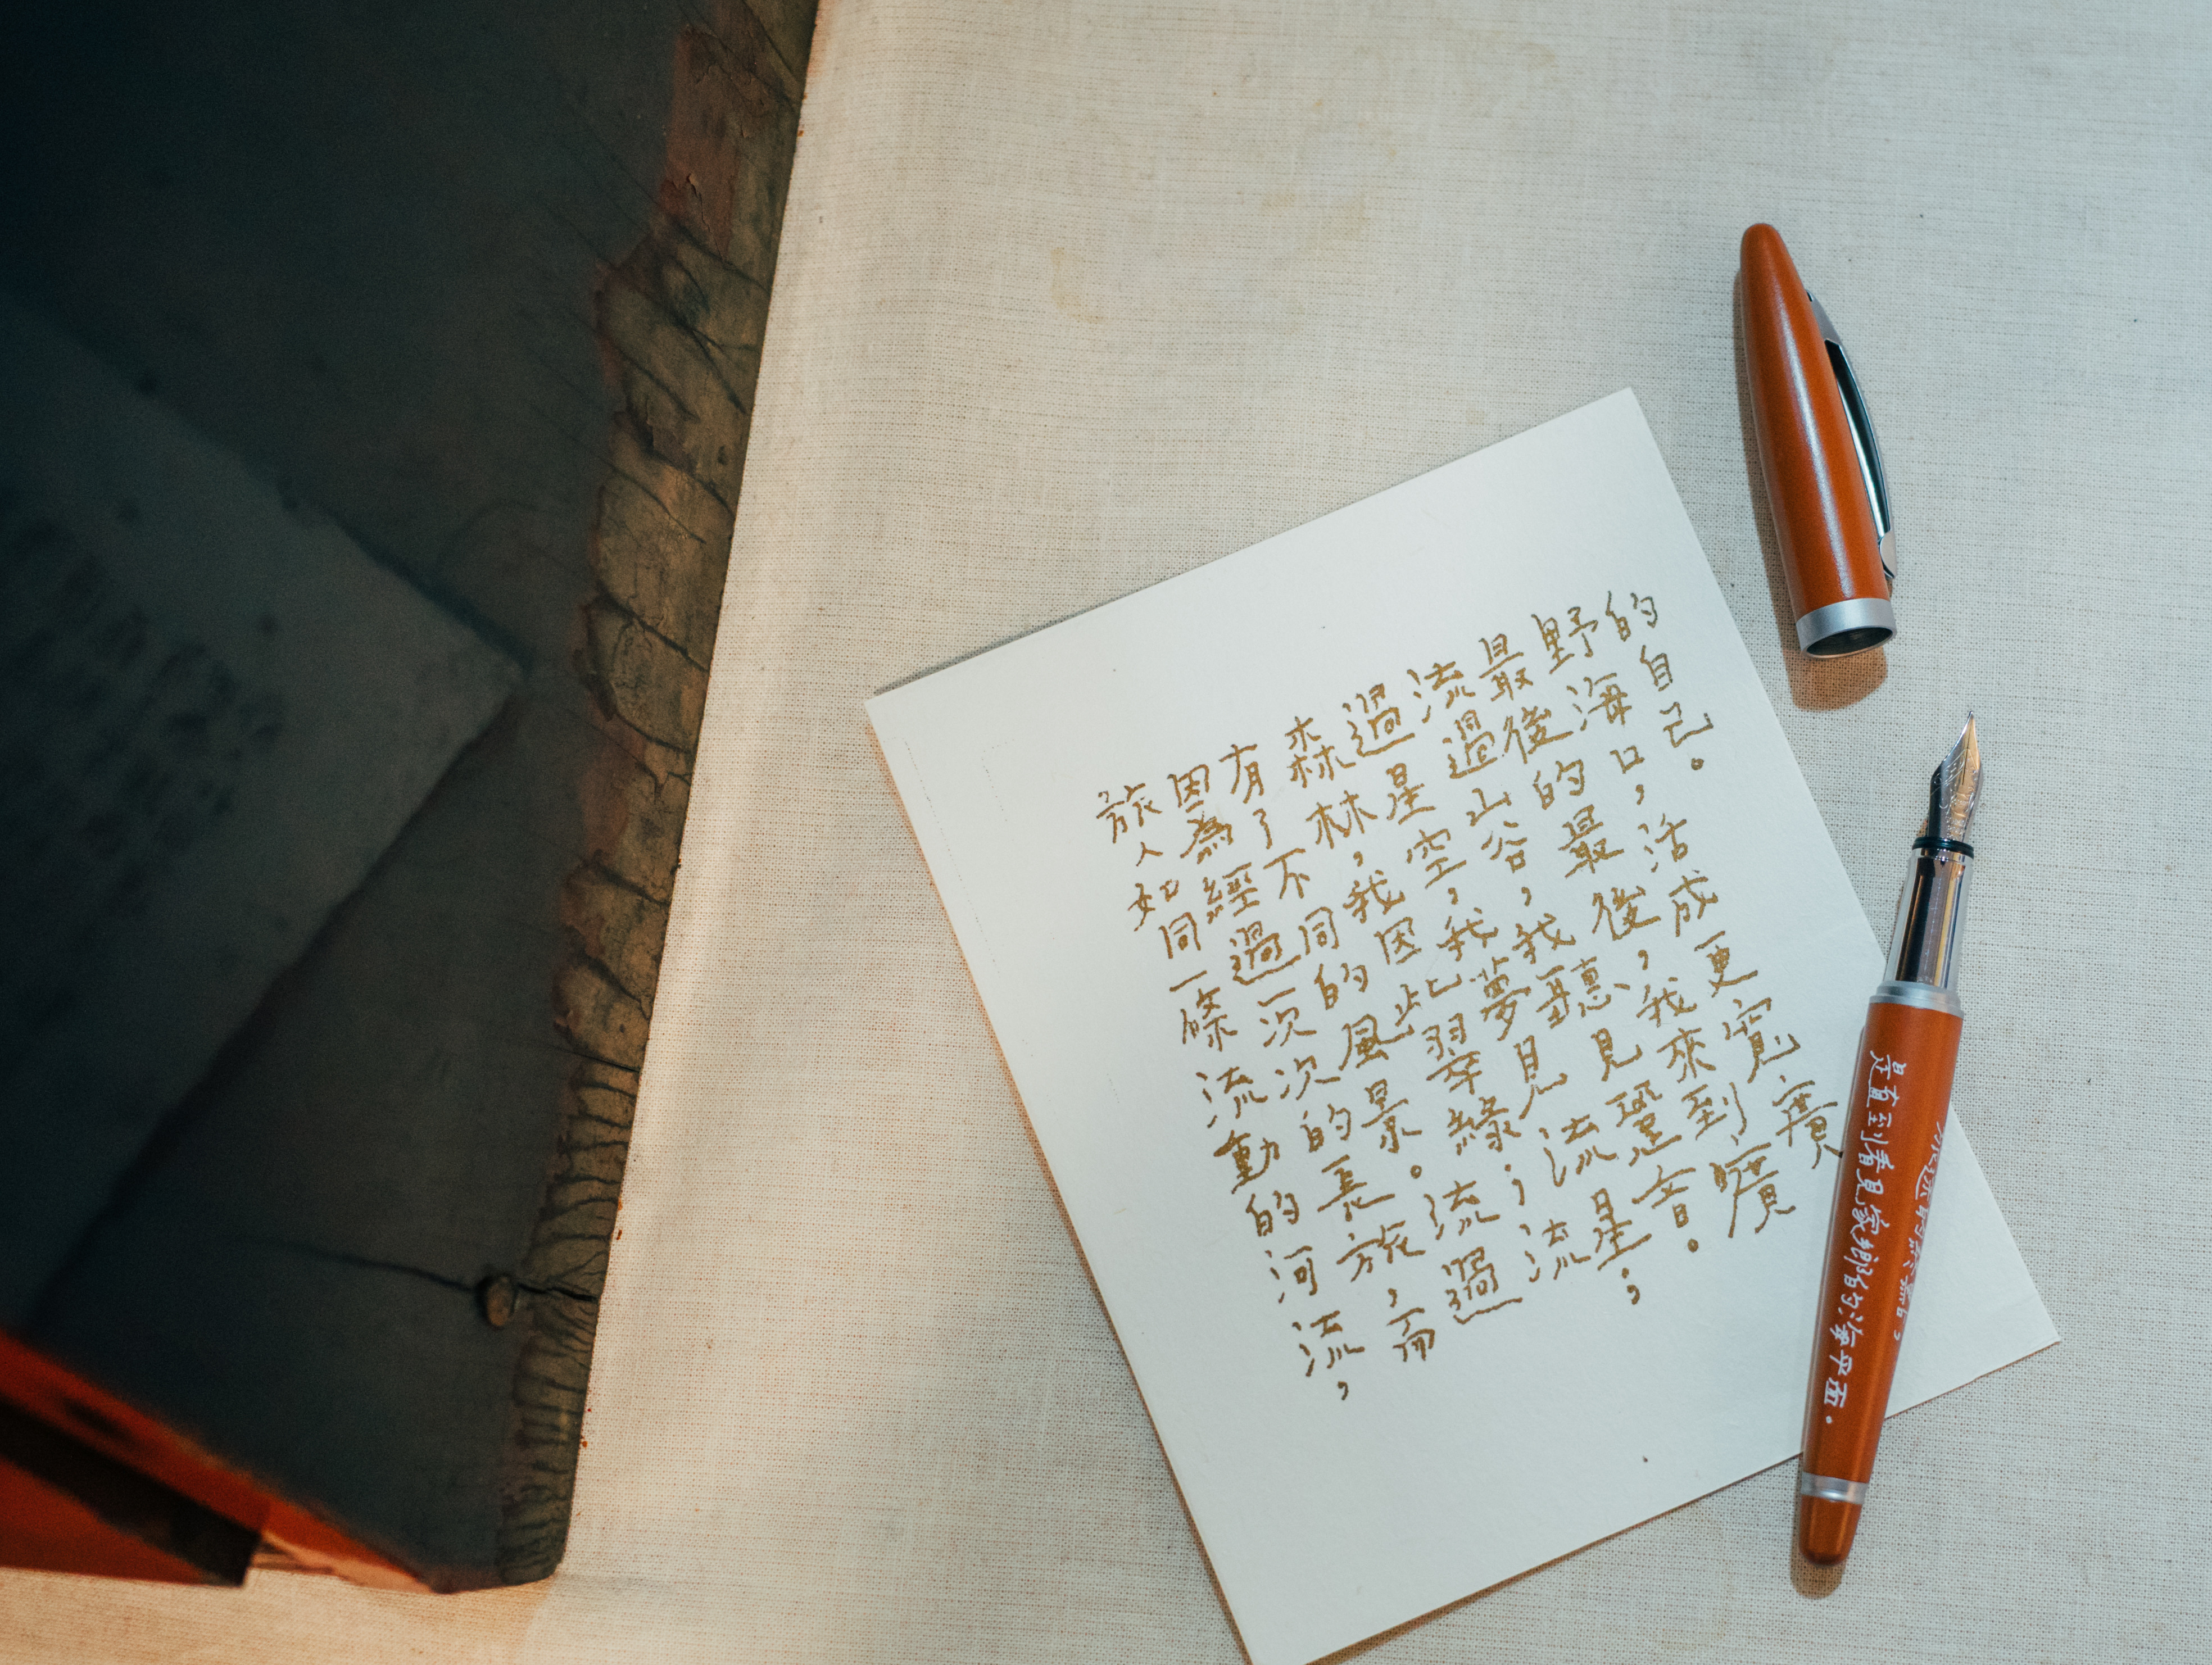 旅人如同一條流動的河流,
因為經過一次次的長旅,而
有了不同的風景。流過
森林,我因此翠綠;流
過星空,我夢見流星;
流過山谷,我聽見音。
最後的最後,我來到曠
野海口,活成更寬廣
的自己。
是直到看見家鄉的海平面。